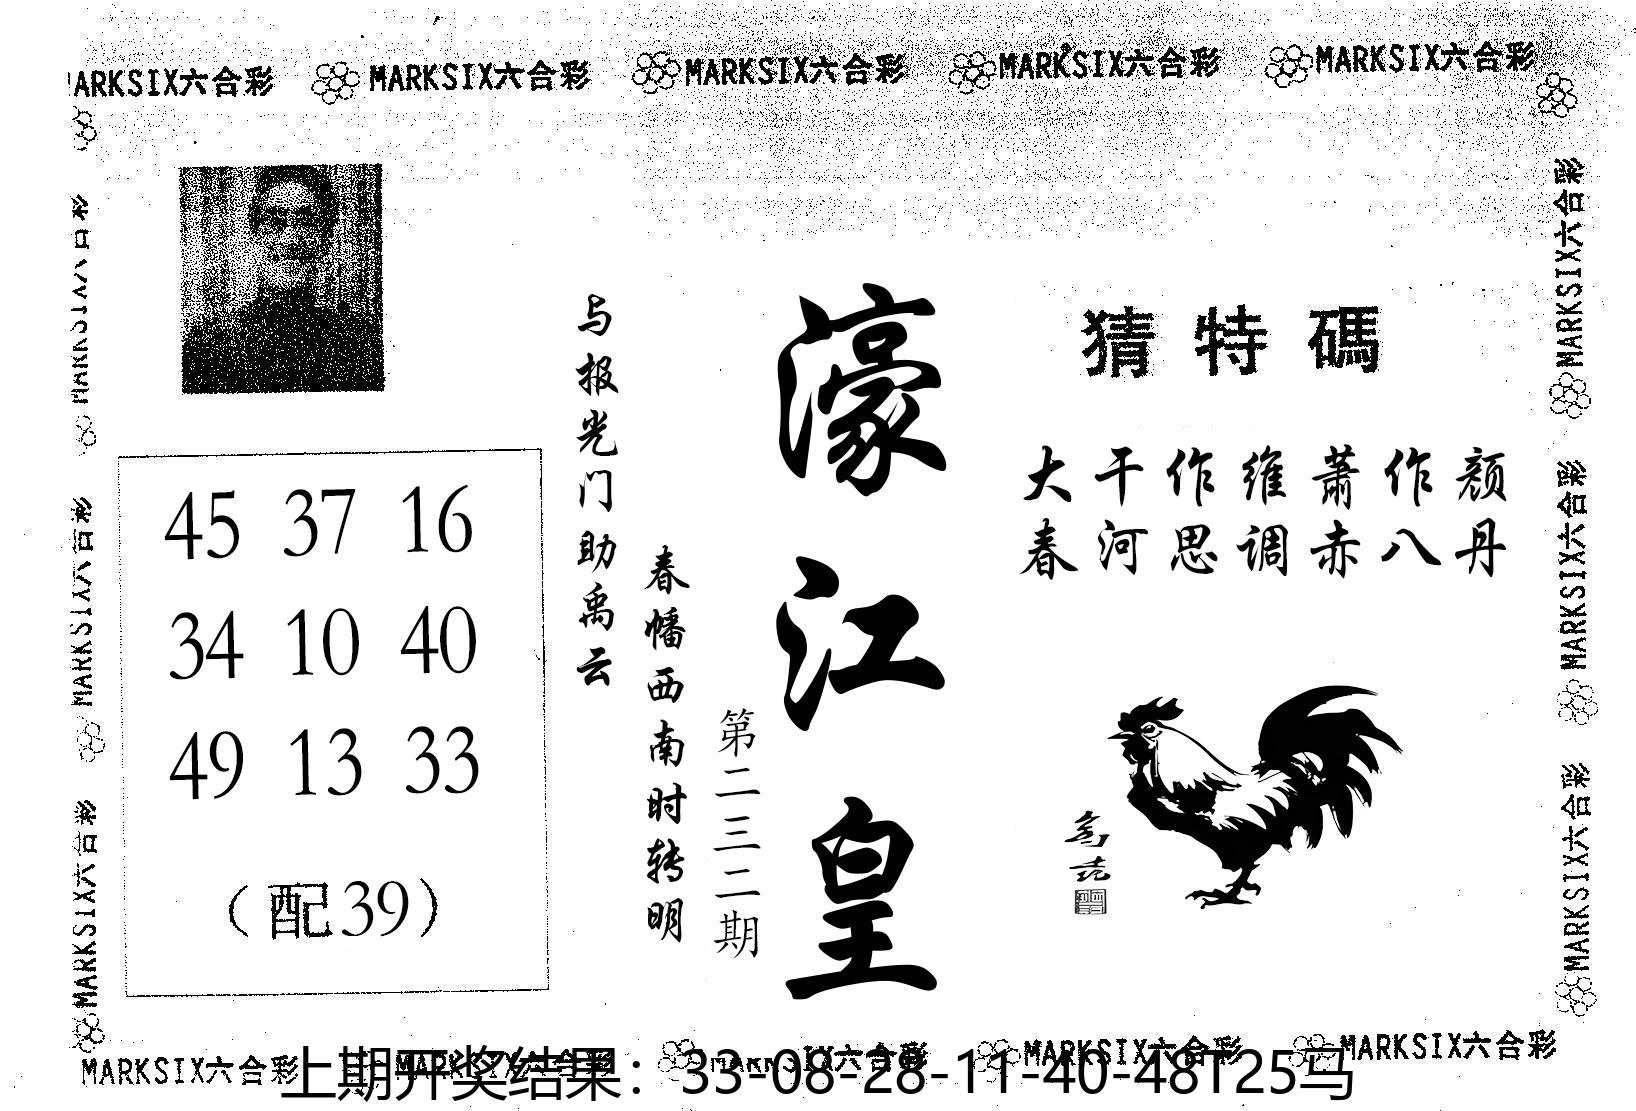 MARKSIX六合彩 MARKSIX六合彩 MARKSIX六合彩 MARKSIX六合彩 MARKSIX六合彩
MARKSIX六合彩
MARKSIX六合彩
MARKSIX六合彩
濠江皇
第二三二期
春幡西南时转明
与报光门助禹云
45 37 16
34 10 40
49 13 33
（配39）
猜特碼
大干作维萧作颜
春河思调赤八丹
MARKSIX六合彩
MARKSIX六合彩
MARKSIX六合彩
MARKSIX六合彩 MARKSIX六合彩 MARKSIX六合彩 MARKSIX六合彩 MARKSIX六合彩
上期开奖结果：33-08-28-11-40-48T25马